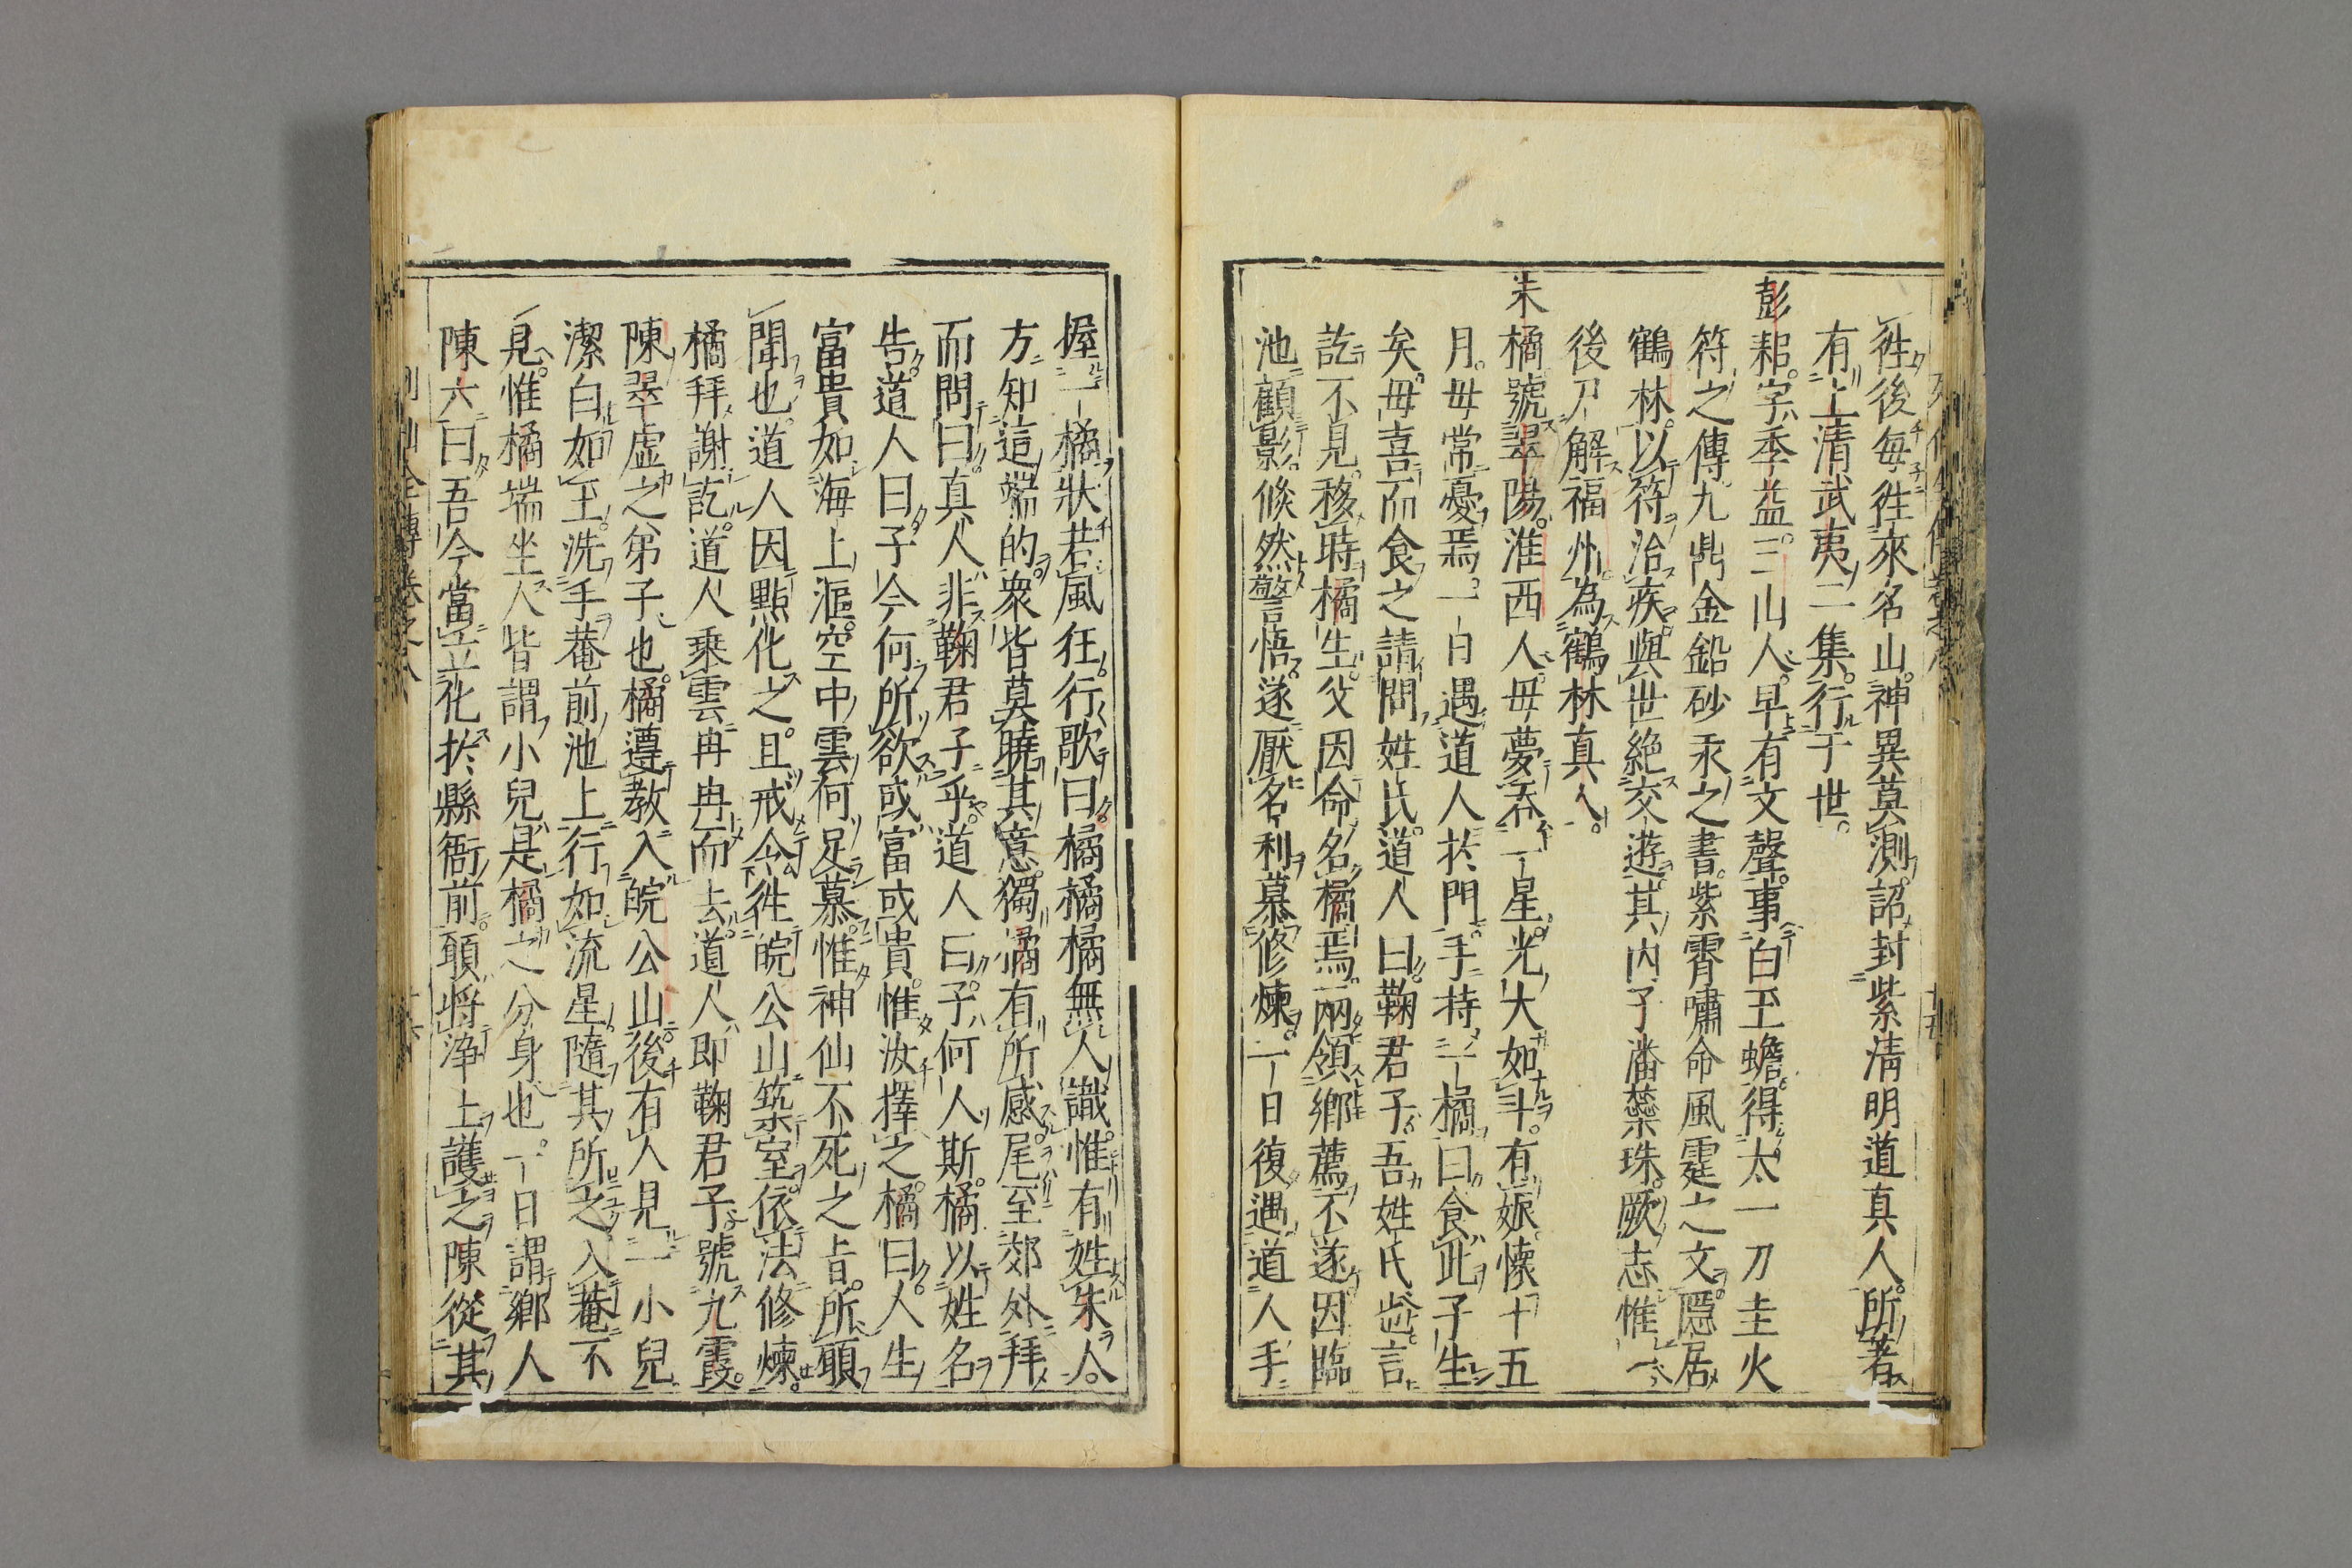 徃後每徃來名山神異莫測詔封紫清明道真人所著
有上清武夷二集行于世
彭耜字季益三山人早有文聲事白玉蟾得太一刀圭火
符之傳九鼎金鉛砂汞之書紫霄嘯命風霆之文隱居
鶴林以符治疾與世絶交遊其内子潘蘂珠厥志惟一
後尸解福州為鶴林真人
朱橘號翠陽淮西人母夢吞一星光大如斗有娠懐十五
月母常憂焉一日遇道人於門手持一橘曰食此子生
矣母喜而食之請問姓氏道人曰鞠君子吾姓氏也言
訖不見移時橘生父因命名橘焉兩領鄉薦不遂因臨
池顧影倐然警悟遂厭名利慕修煉一日復遇道人手
握一橘狀若風狂行歌曰橘橘橘無人識惟有姓朱人
方知這端的衆皆莫曉其意獨橘有所感尾至郊外拜
而問曰真人非鞠君子乎道人曰子何人斯橘以姓名
告道人曰子今何所欲或富或貴惟汝擇之橘曰人生
富貴如海上漚空中雲何足慕惟神仙不死之㫖所願
聞也道人因點化之且戒令徃皖公山築室依法修煉
橘拜謝訖道人乗雲冉冉而去道人即鞠君子號九霞
陳翠虚之弟子也橘遵教入皖公山後有人見一小兒
潔白如玉洗手菴前池上行如流星隨其所之入菴不
見惟橘端坐人皆謂小兒是橘之分身也一日謂鄉人
陳六曰吾今當立化於縣衙前願將浄土護之陳從其